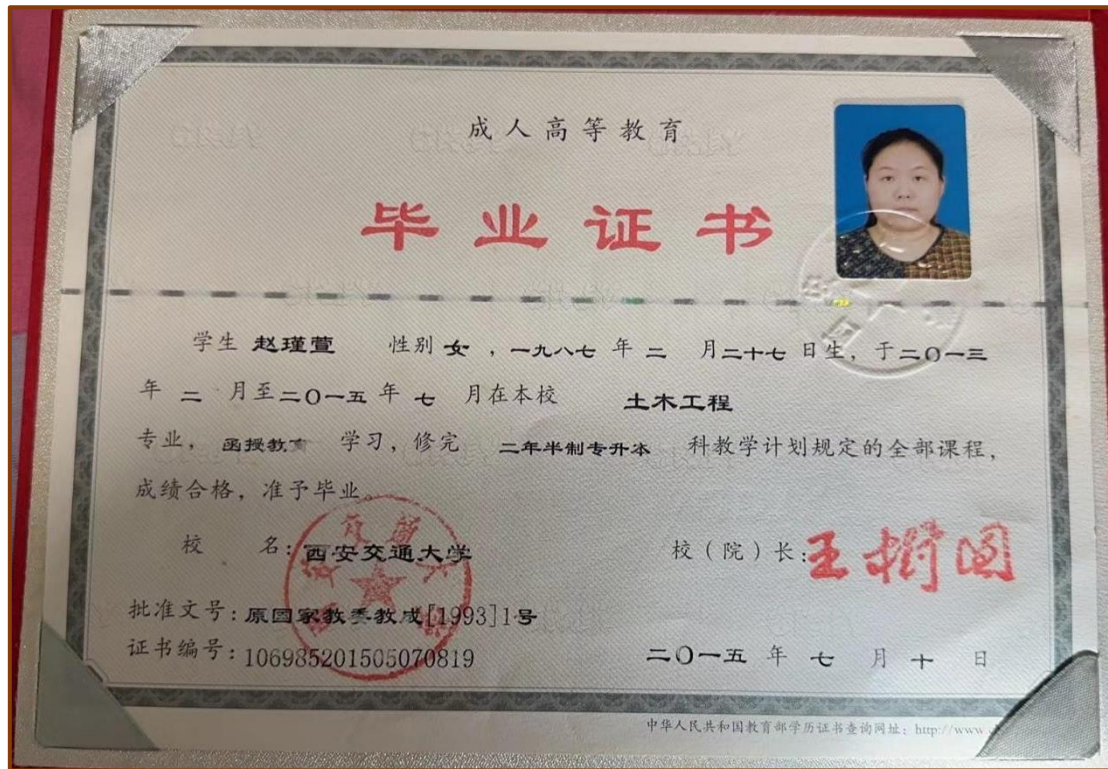 成人高等教育
毕业证书
学生 赵瑾萱 性别 女 ，一九八七 年 二 月二十七 日生，于二〇一三
年 二 月至二〇一五 年 七 月在本校 土木工程
专业， 函授教育 学习，修完 二年半制专升本 科教学计划规定的全部课程，
成绩合格，准予毕业
校 名：西安交通大学
校（院）长：王树国
批准文号：原国家教委教成[1993]1号
证书编号：106985201505070819
二〇一五 年 七 月 十 日
中华人民共和国教育部学历证书查询网址：http://www.